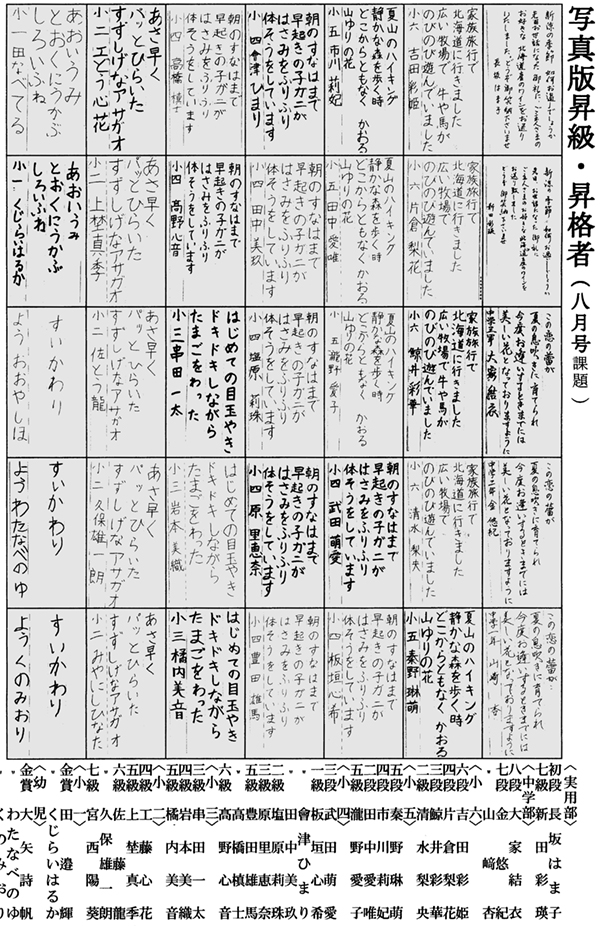 写真版昇級・昇格者(八月号課題)
新涼の季節 如何お過ごしでしょうか
先日お世話になった御礼に ご主人さまの
お好きな北海道産のワインをお送り
いたしました どうぞ御笑納くださいませ
長坂はま子
新涼の季節 如何お過ごしでしょうか
先日お世話になった御礼に
新田彩瑛
この恋の蕾が
夏の息吹きに育てられ
今度お逢いするときまでには
美しい花となっておりますように
中学三年 大家結衣
この恋の蕾が
夏の息吹きに育てられ
今度お逢いするときまでには
美しい花となっておりますように
中学二年 金悠紀
この恋の蕾が
夏の息吹きに育てられ
今度お逢いするときまでには
美しい花となっておりますように
中学一年 山﨑杏
家族旅行で
北海道に行きました
広い牧場で 牛や馬が
のびのび遊んでいました
小六 吉田彩姫
家族旅行で
北海道に行きました
広い牧場で 牛や馬が
のびのび遊んでいました
小六 片倉梨花
家族旅行で
北海道に行きました
広い牧場で 牛や馬が
のびのび遊んでいました
小六 鯨井彩華
家族旅行で
北海道に行きました
広い牧場で 牛や馬が
のびのび遊んでいました
小六 清水梨央
夏山のハイキング
静かな森を歩く時
どこからともなく かおる
山ゆりの花
小五 秦野琳萌
夏山のハイキング
静かな森を歩く時
どこからともなく かおる
山ゆりの花
小五 市川莉妃
夏山のハイキング
静かな森を歩く時
どこからともなく かおる
山ゆりの花
小五 田中愛唯
夏山のハイキング
静かな森を歩く時
どこからともなく かおる
山ゆりの花
小五 瀧野愛子
朝のすなはまで
早起きの子ガニが
はさみをふりふり
体そうをしています
小四 武田萌愛
朝のすなはまで
早起きの子ガニが
はさみをふりふり
体そうをしています
小四 板垣心希
朝のすなはまで
早起きの子ガニが
はさみをふりふり
体そうをしています
小四 會津ひまり
朝のすなはまで
早起きの子ガニが
はさみをふりふり
体そうをしています
小四 田中美玖
朝のすなはまで
早起きの子ガニが
はさみをふりふり
体そうをしています
小四 塩原莉珠
朝のすなはまで
早起きの子ガニが
はさみをふりふり
体そうをしています
小四 原里恵奈
朝のすなはまで
早起きの子ガニが
はさみをふりふり
体そうをしています
小四 豊田雄馬
朝のすなはまで
早起きの子ガニが
はさみをふりふり
体そうをしています
小四 髙橋慎士
朝のすなはまで
早起きの子ガニが
はさみをふりふり
体そうをしています
小四 髙野心音
はじめての目玉やき
ドキドキしながら
たまごをわった
小三 串田一太
はじめての目玉やき
ドキドキしながら
たまごをわった
小三 岩本美織
はじめての目玉やき
ドキドキしながら
たまごをわった
小三 橘内美音
あさ早く
パッとひらいた
すずしげなアサガオ
小二 工どう心花
あさ早く
パッとひらいた
すずしげなアサガオ
小二 上埜真季
あさ早く
パッとひらいた
すずしげなアサガオ
小二 佐とう龍
あさ早く
パッとひらいた
すずしげなアサガオ
小二 久保雄一朗
あさ早く
パッとひらいた
すずしげなアサガオ
小二 みやにしひなた
あおいうみ
とおくにうかぶ
しろいふね
小一 田なべてる
あおいうみ
とおくにうかぶ
しろいふね
小一 くじらいはるか
すいかわり
よう おおやしほ
すいかわり
よう わたなべのゆ
すいかわり
よう くのみおり
〈実用部〉
初段 長坂はま子
七級 新田彩瑛
〈中学部〉
大家結衣
金悠紀
山﨑杏
〈小六〉
吉田彩姫
片倉梨花
鯨井彩華
清水梨央
〈小五〉
秦野琳萌
市川莉妃
田中愛唯
瀧野愛子
〈小四〉
武田萌愛
板垣心希
會津ひまり
田中美玖
塩原莉珠
原里恵奈
豊田雄馬
髙橋慎士
髙野心音
〈小三〉
串田一太
岩本美織
橘内美音
〈小二〉
工藤心花
上埜真季
佐藤龍
久保雄一朗
七級 宮西陽葵
〈小一〉
金賞 田邉一輝
くじらいはるか
〈幼児〉
金賞 大矢詩帆
わたなべのゆ
くのみおり